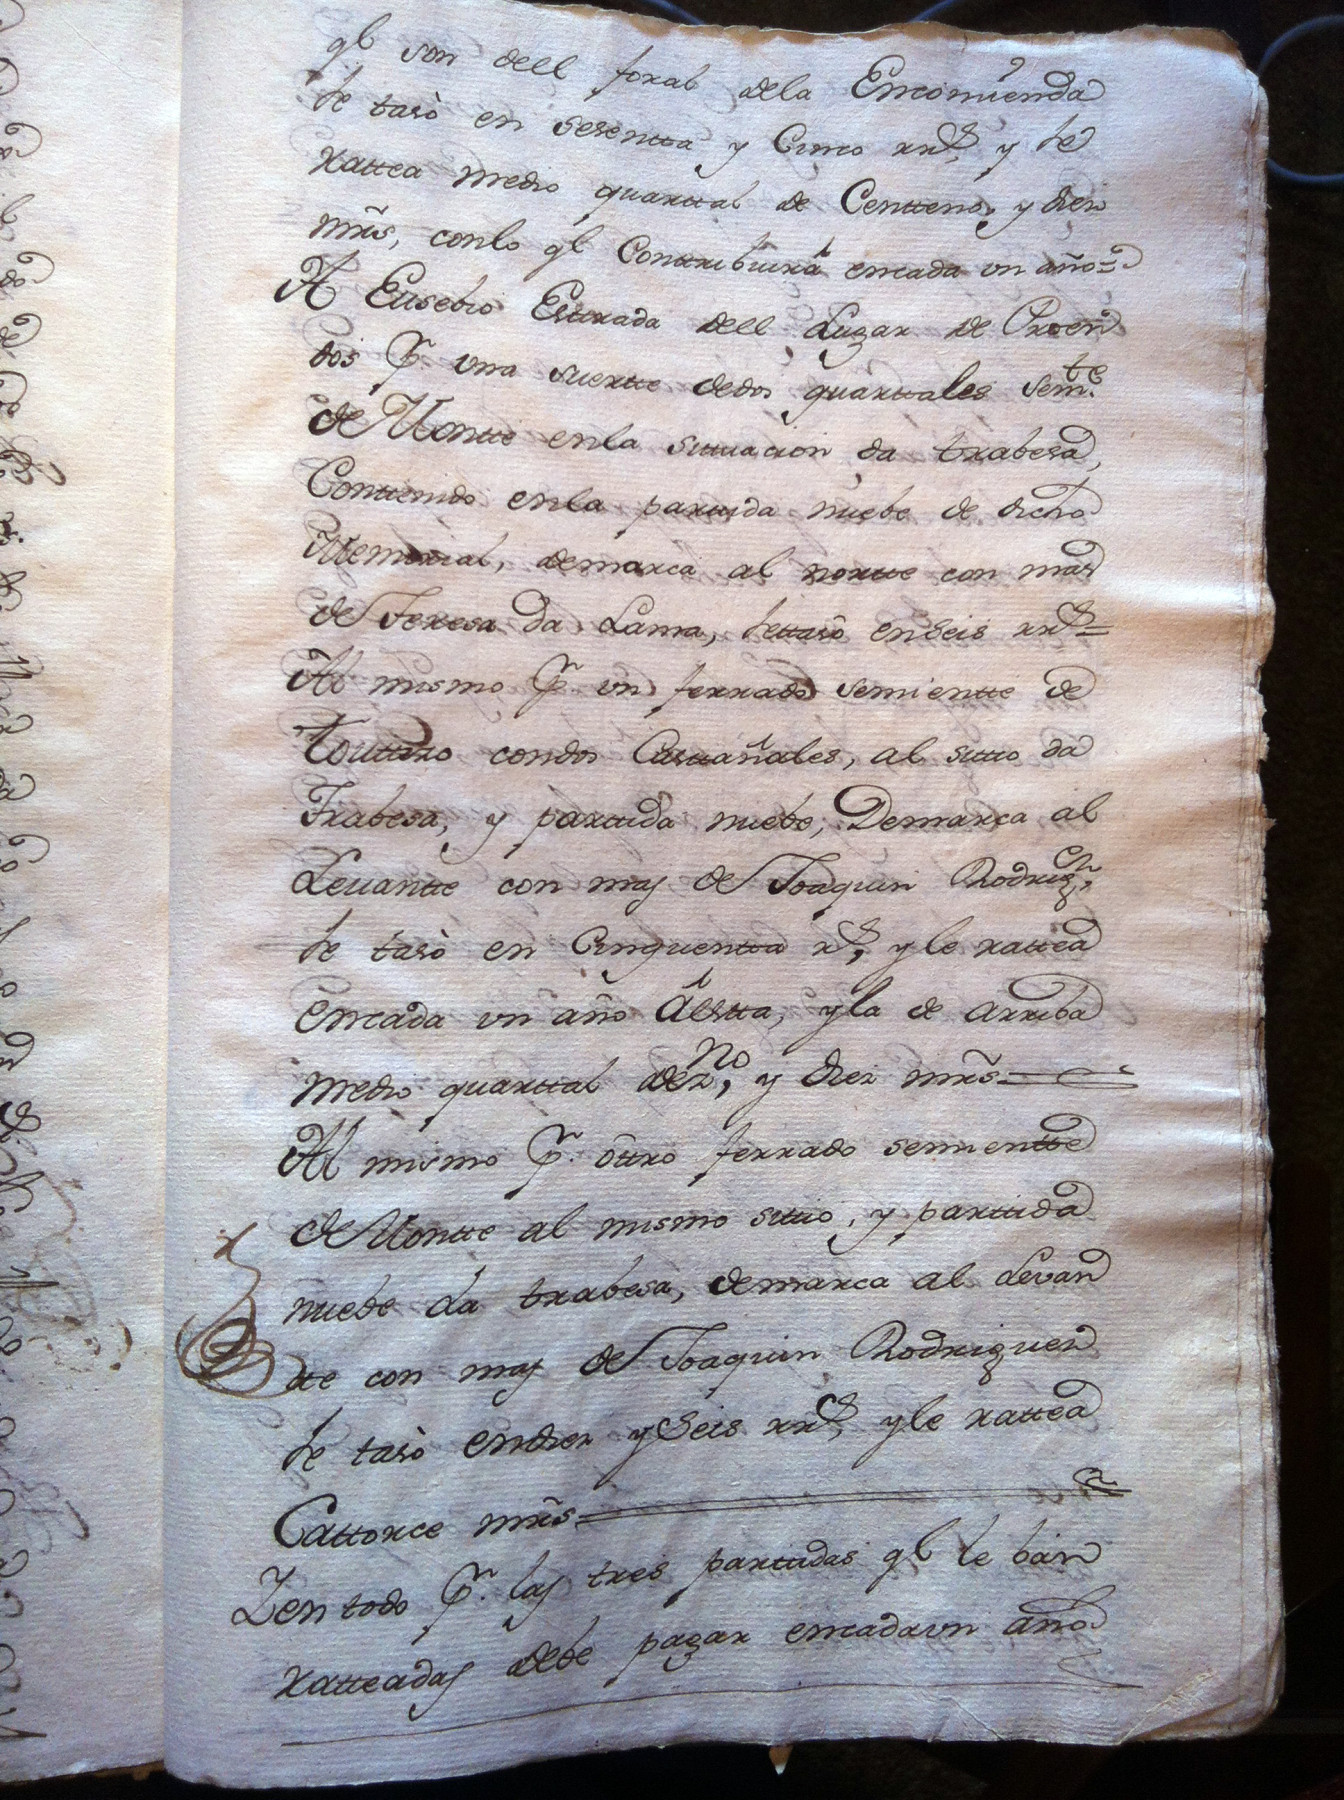 ql son dell foral dela Encomienda
Se tasò en sesentta y Cinco rrs, y se
ratteа medio quarttal de Centteno, y diez
mrs, conlo ql Conttribuirá encada vn año=
A Eusebio Esttrada dell Lugar de Proen
dos Pr. vna suertte dedos quarttales semte.
de Montte enla sittuacion da trabesa,
Conttenido enla parttida nuebe de dicho
Memorial, demarca al nortte con mas
de Teresa da Lama, settasò enSeis rrs=
Al mismo Pr vn ferrado semientte de
touttizo condos Casttañales, al sittio da
Trabesa, y parttida nuebe, Demarca al
Levantte con mas de Joaquin Rodrigz,
Se tasò en Cinquentta rs, y le rattea
encada vn año á estta, yla de arriba
medio quarttal dezno, y diez mrs=
Al mismo Pr. ottro ferrado semientte
de Montte al mismo sittio, y parttida
nuebe da trabesa, demarca al Levan
tte con mas de Joaquin Rodriguez
Se tasò endiez ySeis rrs, yle rattea
Cattorce mrs=
Y en todo Pr. las tres parttidas ql le ban
ratteadas debe pagar encadavn año